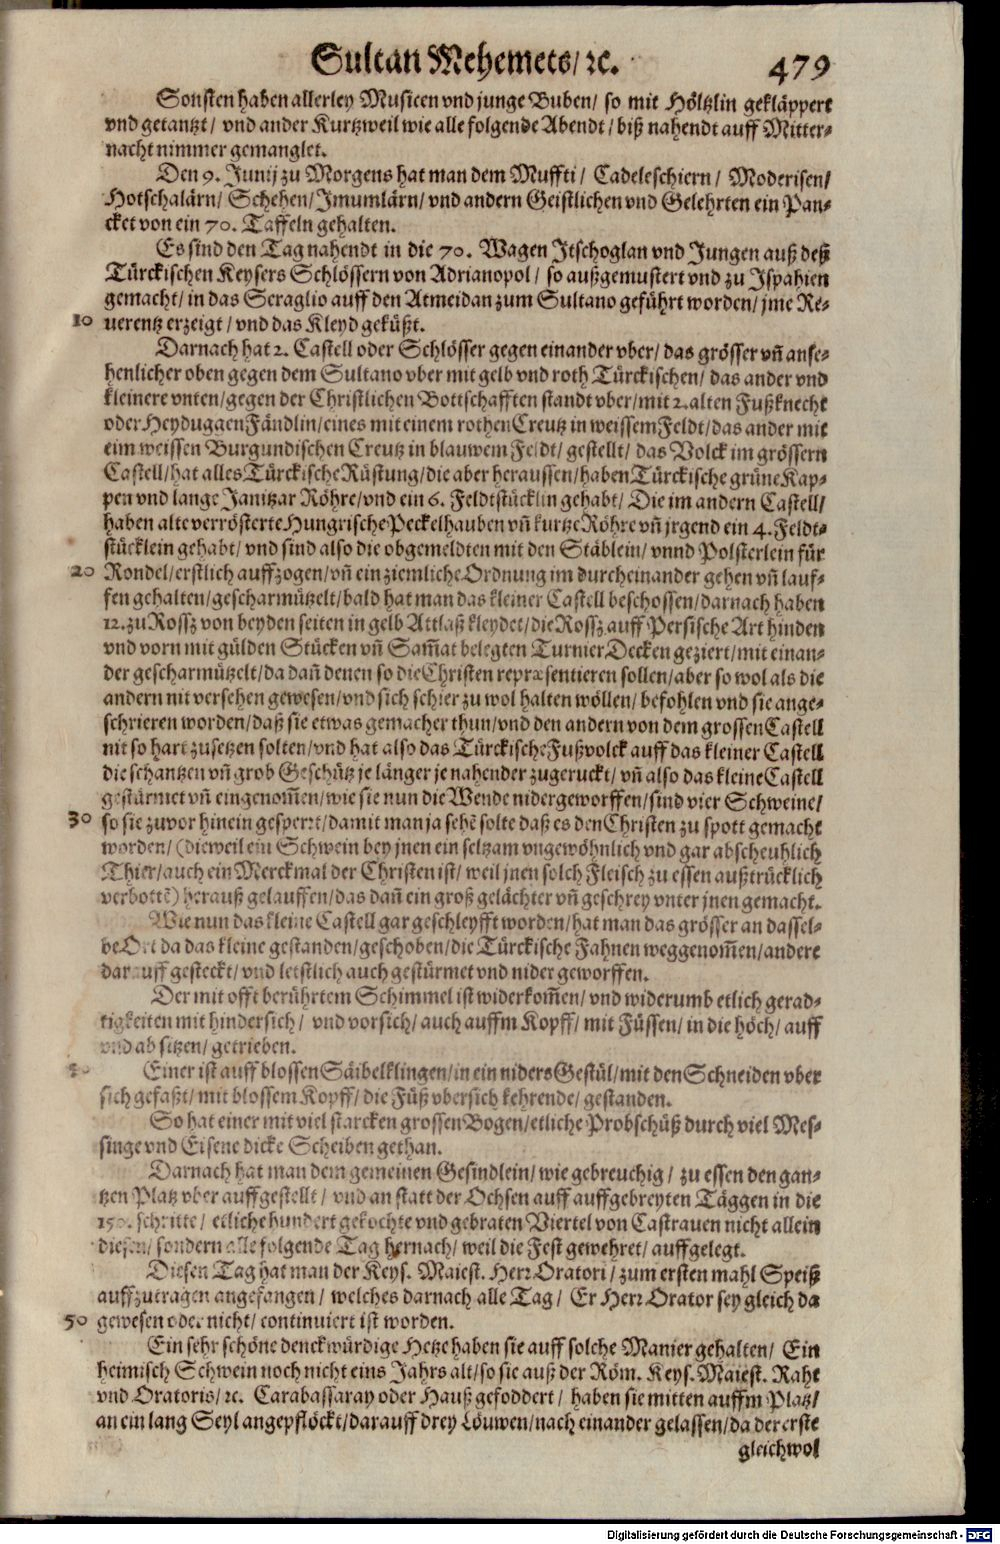 Sultan Mehemets/ ꝛc. 479
Sonsten haben allerley Musicen vnd junge Buben/ so mit Höltzlin gekläppert
vnd getantzt/ vnd ander Kurtzweil wie alle folgende Abendt/ biß nahendt auff Mitter-
nacht nimmer gemanglet.
Den 9. Junij zu Morgens hat man dem Muffti/ Cadeleschiern/ Moderisen/
Hotschalärn/ Schehen/ Imumlärn/ vnd andern Geistlichen vnd Gelehrten ein Pan-
cket von ein 70. Taffeln gehalten.
Es sind den Tag nahendt in die 70. Wagen Itschoglan vnd Jungen auß deß
Türckischen Keysers Schlössern von Adrianopol/ so außgemustert vnd zu Ispahien
gemacht/ in das Seraglio auff den Atmeidan zum Sultano geführt worden/ jme Re-
10 uerentz erzeigt/ vnd das Kleyd geküßt.
Darnach hat 2. Castell oder Schlösser gegen einander vber/ das grösser vñ anse-
henlicher oben gegen dem Sultano vber mit gelb vnd roth Türckischen/ das ander vnd
kleinere vnten/ gegen der Christlichen Bottschafften standt vber/ mit 2. alten Fußknecht
oder Heyduggen Fändlin/ eines mit einem rothen Creutz in weissem Feldt/ das ander mit
eim weissen Burgundischen Creutz in blauwem Feldt/ gestellt/ das Volck im grössern
Castell/ hat alles Türckische Rüstung/ die aber heraussen/ haben Türckische grüne Kap-
pen vnd lange Janitzar Röhre/ vnd ein 6. Feldtstücklin gehabt/ Die im andern Castell/
haben alte verrösterte Hungrische Peckelhauben vñ kurtze Röhre vñ jrgend ein 4. Feldt-
stücklein gehabt/ vnd sind also die obgemeldten mit den Stäblein/ vnnd Polsterlein für
20 Rondel/ erstlich auffzogen/ vñ ein ziemliche Ordnung im durcheinander gehen vñ lauf-
fen gehalten/ gescharmützelt/ bald hat man das kleiner Castell beschossen/ darnach haben
12. zu Rossz von beyden seiten in gelb Attlaß kleydet/ die Rossz auff Persische Art hinden
vnd vorn mit gülden Stücken vñ Sam̃at belegten Turnier Decken geziert/ mit einan-
der gescharmützelt/ da dañ denen so die Christen repræsentieren sollen/ aber so wol als die
andern nit versehen gewesen/ vnd sich schier zu wol halten wöllen/ befohlen vnd sie ange-
schrieren worden/ daß sie etwas gemacher thun/ vnd den andern von dem grossen Castell
nit so hart zusetzen solten/ vnd hat also das Türckische Fußvolck auff das kleiner Castell
die schantzen vñ grob Geschütz je länger je nahender zugeruckt/ vñ also das kleine Castell
gestürmet vñ eingenom̃en/ wie sie nun die Wende nidergeworffen/ sind vier Schweine/
30 so sie zuvor hinein gesperrt/ damit man ja sehẽ solte daß es den Christen zu spott gemacht
worden/ (dieweil ein Schwein bey jnen ein seltzam vngewöhnlich vnd gar abscheuhlich
Thier/ auch ein Merckmal der Christen ist/ weil jnen solch Fleisch zu essen außtrücklich
verbottẽ) herauß gelauffen/ das dañ ein groß gelächter vñ geschrey vnter jnen gemacht.
Wie nun das kleine Castell gar geschleyfft worden/ hat man das grösser an dassel-
be Ort da das kleine gestanden/ geschoben/ die Türckische Fahnen weggenom̃en/ andere
darauff gesteckt/ vnd letstlich auch gestürmet vnd nider geworffen.
Der mit offt berührtem Schimmel ist widerkom̃en/ vnd widerumb etlich gerad-
tigkeiten mit hindersich/ vnd vorsich/ auch auffm Kopff/ mit Füssen/ in die höch/ auff
vnd ab sitzen/ getrieben.
Einer ist auff blossen Säibelklingen/ in ein niders Gestül/ mit den Schneiden vber
sich gefaßt/ mit blossem Kopff/ die Füß vbersich kehrende/ gestanden.
So hat einer mit viel starcken grossen Bogen/ etliche Probschüß durch viel Mes-
singe vnd Eisene dicke Scheiben gethan.
Darnach hat man dem gemeinen Gesindlein/ wie gebreuchig/ zu essen den gan-
tzen Platz vber auffgestellt/ vnd an statt der Ochsen auff auffgebreyten Täggen in die
150. schritte/ etliche hundert gekochte vnd gebraten Viertel von Castrauen nicht allein
diesen/ sondern alle folgende Tag hernach/ weil die Fest gewehret/ auffgelegt.
Diesen Tag hat man der Keys. Maiest. Herr Oratori/ zum ersten mahl Speiß
auffzutragen angefangen/ welches darnach alle Tag/ Er Herr Orator sey gleich da
50 gewesen oder nicht/ continuiert ist worden.
Ein sehr schöne denckwürdige Hetze haben sie auff solche Manier gehalten/ Ein
heimisch Schwein noch nicht eins Jahrs alt/ so sie auß der Röm. Keys. Maiest. Raht
vnd Oratoris/ ꝛc. Carabassaray oder Hauß gefoddert/ haben sie mitten auffm Platz/
an ein lang Seyl angepflöckt/ darauff drey Löuwen/ nach einander gelassen/ da der erste
gleichwol
Digitalisierung gefördert durch die Deutsche Forschungsgemeinschaft - DFG